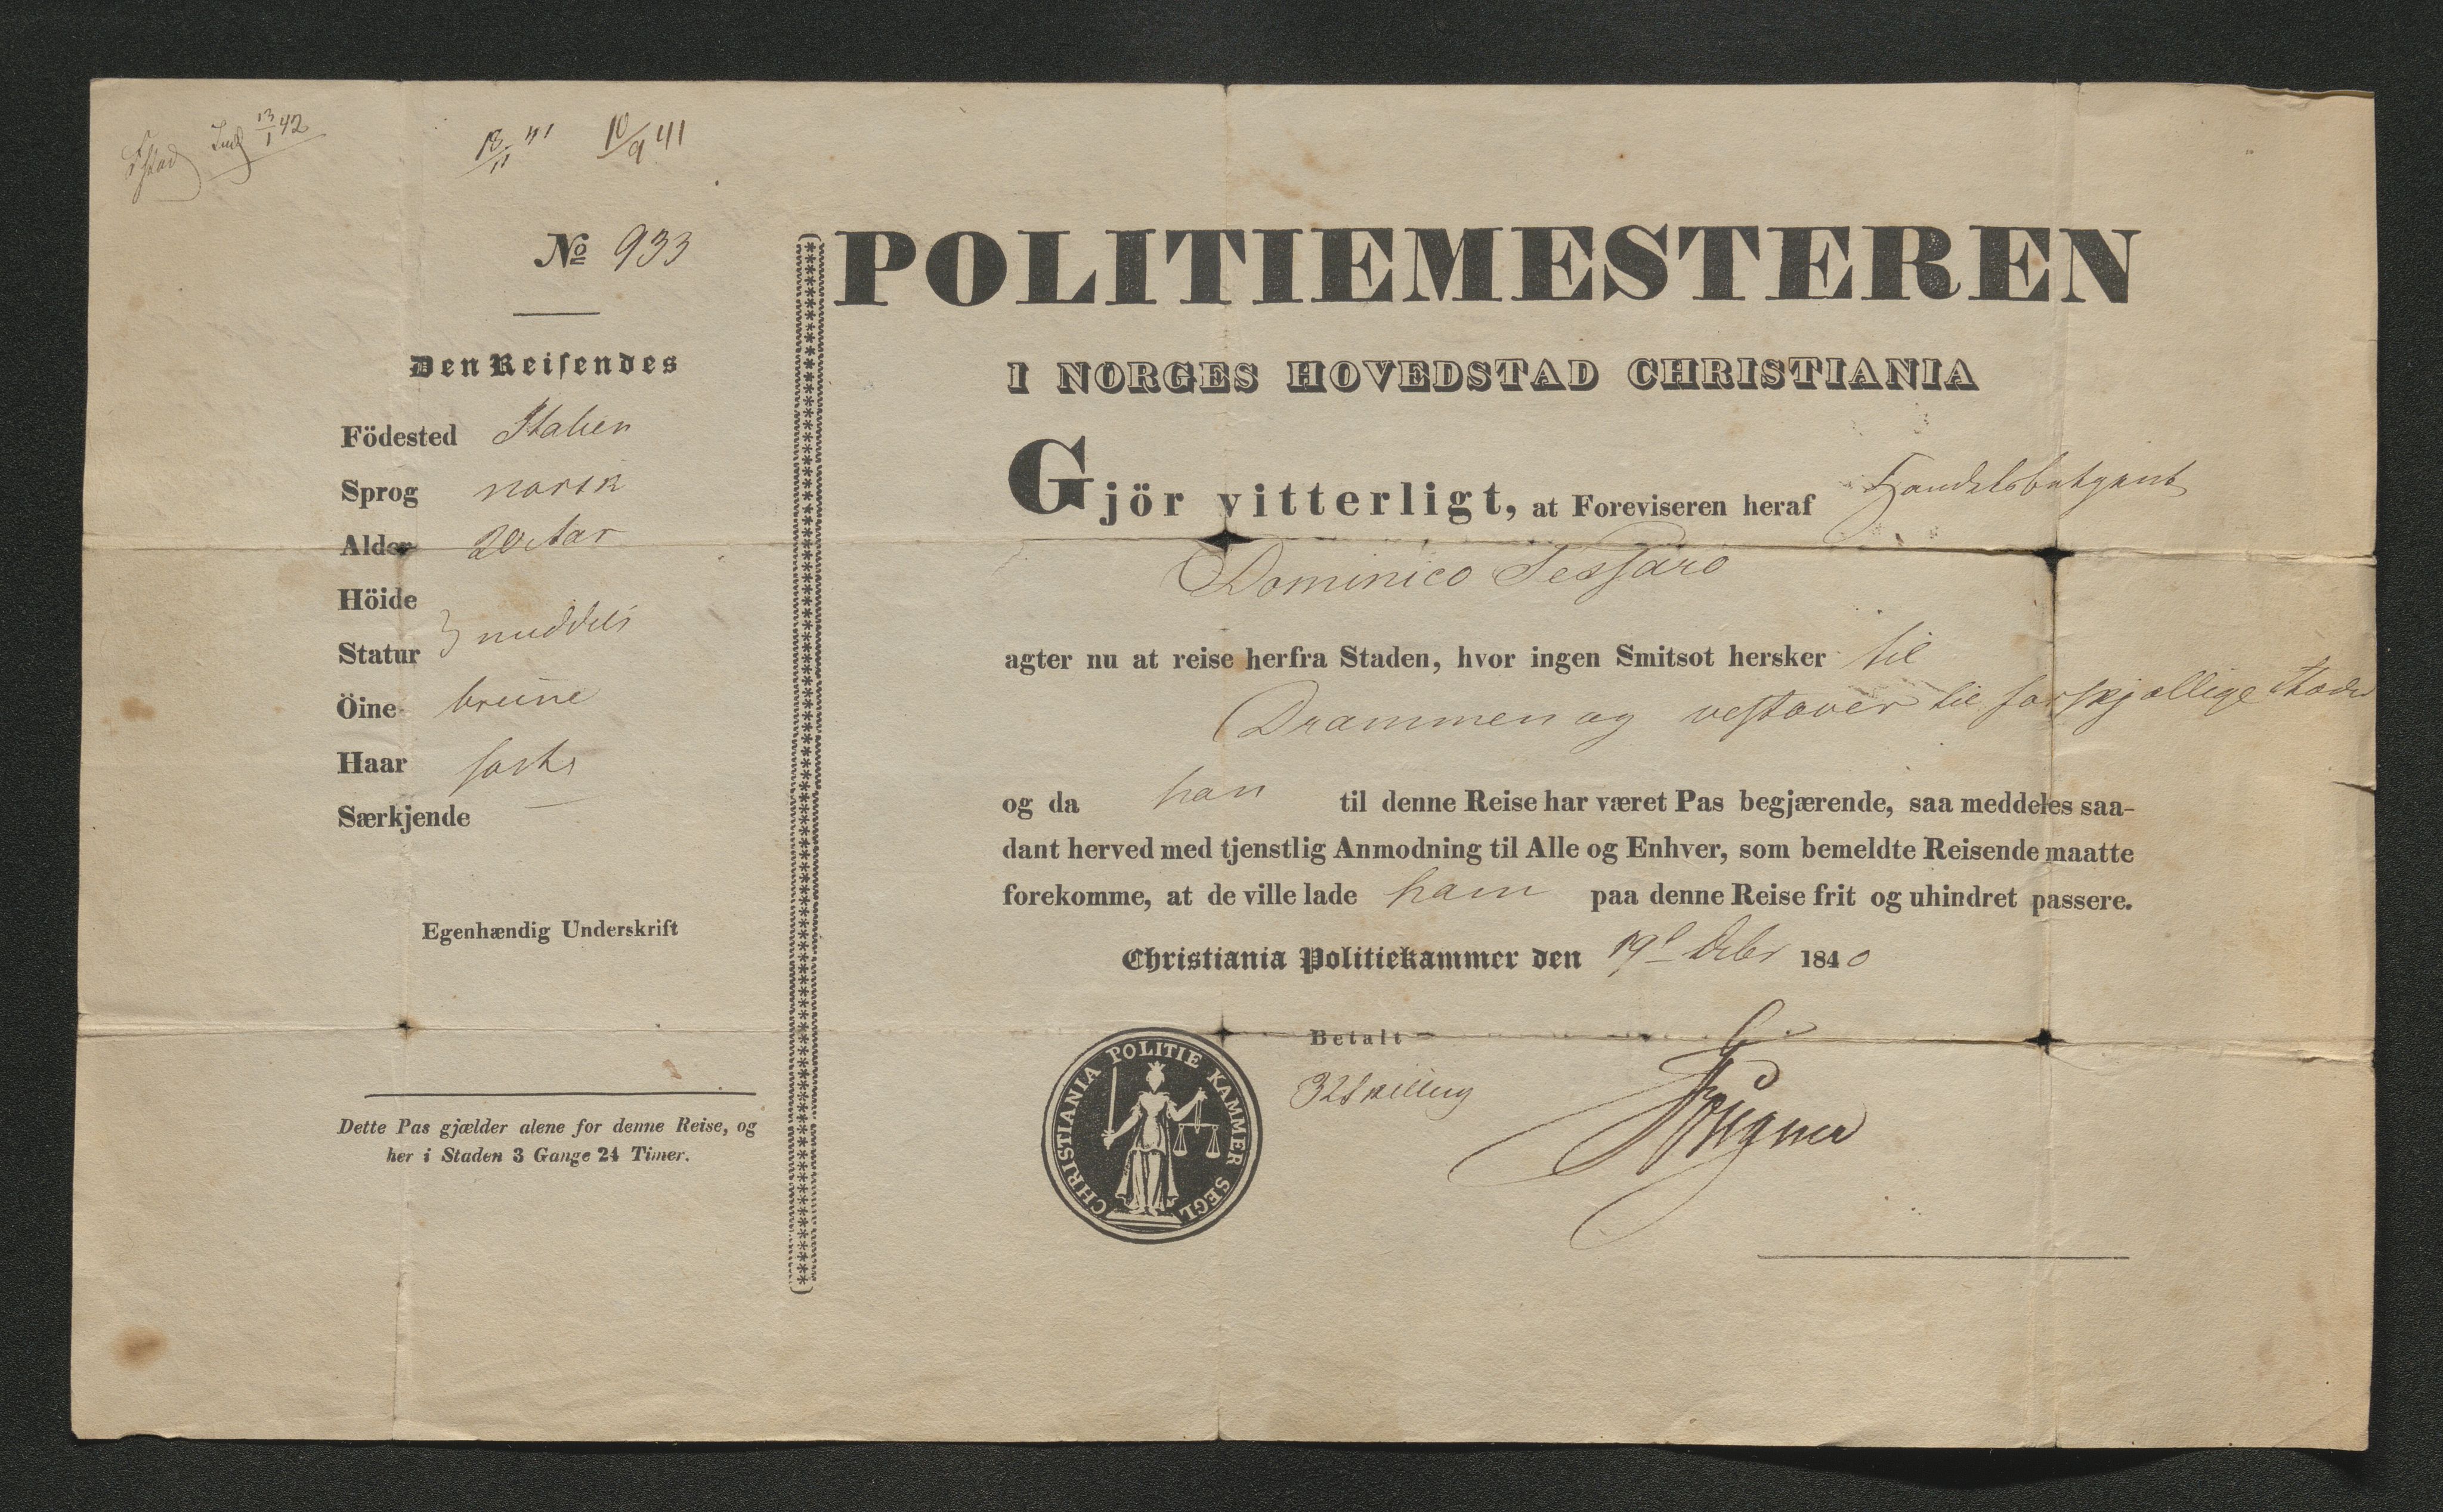 Ind 13/1 42
13/11 41 10/9 41
No 933
Den Reisendes
Födested Italien
Sprog norsk
Alder 20 Aar
Höide
Statur } middels
Öine brune
Haar sorte
Særkjende —
Egenhændig Underskrift
Dette Pas gjælder alene for denne Reise, og
her i Staden 3 Gange 24 Timer.
POLITIEMESTEREN
I NORGES HOVEDSTAD CHRISTIANIA
Gjör vitterligt, at Foreviseren heraf Handelsbetjent
Dominico Tessaro
agter nu at reise herfra Staden, hvor ingen Smitsot hersker til
Drammen og vestover til forskjællige Stæder
og da han til denne Reise har været Pas begjærende, saa meddeles saa-
dant herved med tjenstlig Anmodning til Alle og Enhver, som bemeldte Reisende maatte
forekomme, at de ville lade ham paa denne Reise frit og uhindret passere.
Christiania Politiekammer den 19d Debr 1840
Betalt
32 Skilling
CHRISTIANIA POLITIE KAMMER SEGL